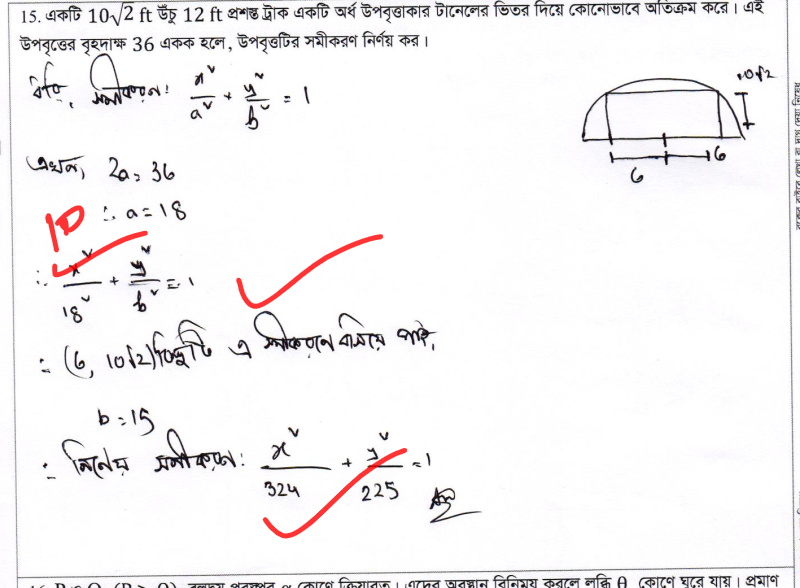 15. একটি 10√2 ft উঁচু 12 ft প্রশস্ত ট্রাক একটি অর্ধ উপবৃত্তাকার টানেলের ভিতর দিয়ে কোনোভাবে অতিক্রম করে। এই
উপবৃত্তের বৃহদাক্ষ 36 একক হলে, উপবৃত্তটির সমীকরণ নির্ণয় কর।
ধরি, সমীকরণ: x²/a² + y²/b² = 1
10√2
6 6
এখন, 2a = 36
∴ a = 18
10
∴ x²/18² + y²/b² = 1
∴ (6, 10√2) বিন্দুটি এ সমীকরণে বসিয়ে পাই,
b = 15
∴ নির্ণেয় সমীকরণ: x²/324 + y²/225 = 1
কোণে ক্রিয়ারত। এদের অবস্থান বিনিময় করলে লব্ধি θ কোণে ঘুরে যায়। প্রমাণ